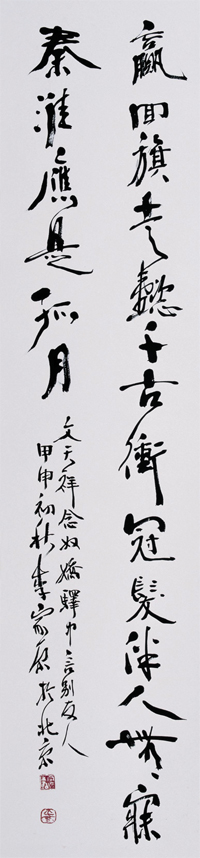 嬴回旗走懿千古衝冠髮伴人無寐
秦淮應是孤月
文天祥念奴嬌驛中言別友人
甲申初秋李家原於北京